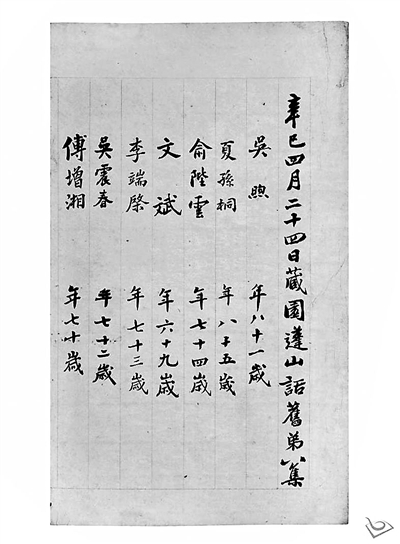 辛巳四月二十四日藏園蓬山話舊第八集
吳煦 年八十一歲
夏孫桐 年八十五歲
俞陛雲 年七十四歲
文斌 年六十九歲
李端棨 年七十三歲
吳震春 年七十二歲
傅增湘 年七十歲